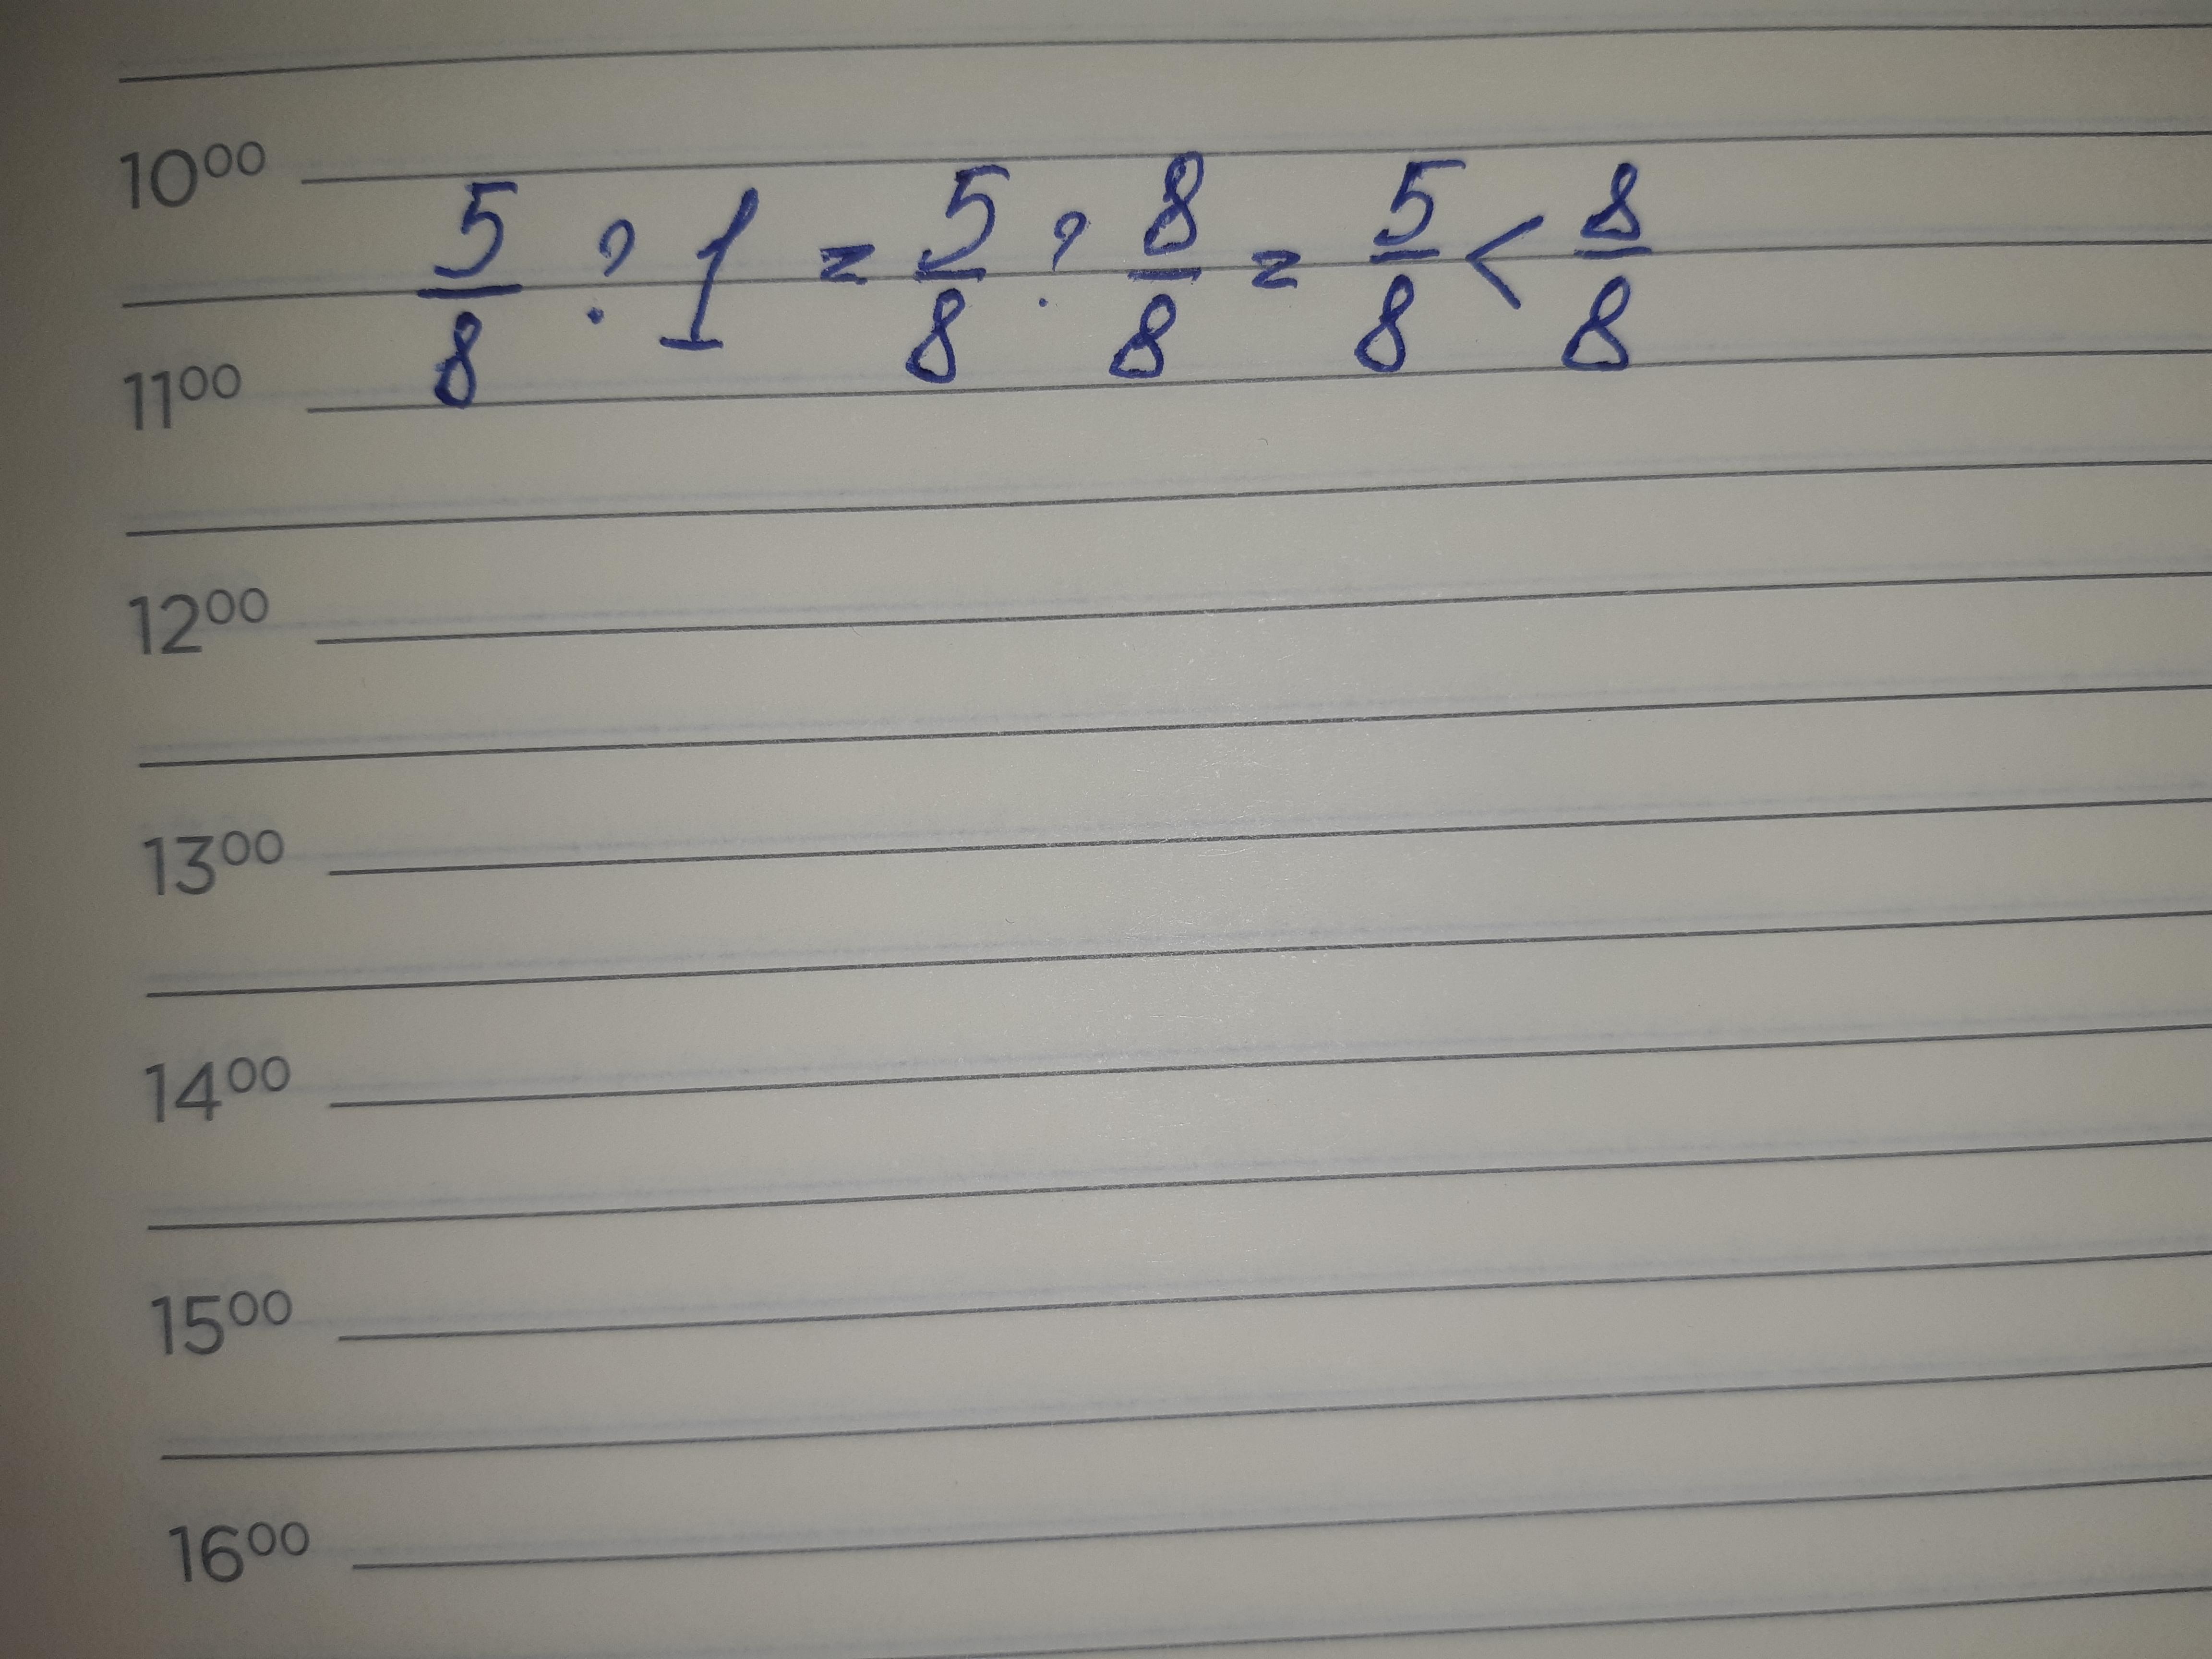 10⁰⁰
5/8 ? 1 = 5/8 ? 8/8 = 5/8 < 8/8
11⁰⁰
12⁰⁰
13⁰⁰
14⁰⁰
15⁰⁰
16⁰⁰